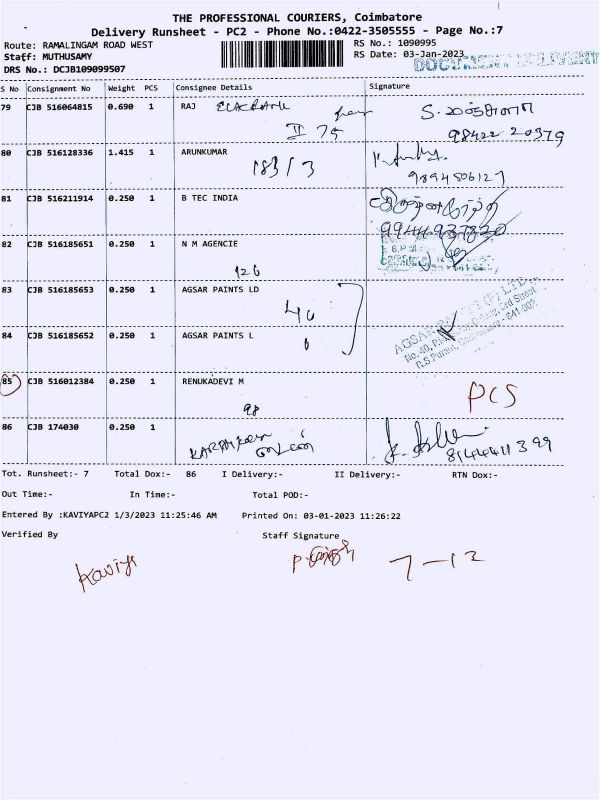 THE PROFESSIONAL COURIERS, Coimbatore
Delivery Runsheet - PC2 - Phone No.:0422-3505555 - Page No.:7
Route: RAMALINGAM ROAD WEST RS No.: 1090995
Staff: MUTHUSAMY RS Date: 03-Jan-2023
DOCUMENT DELIVERY
DRS No.: DCJB109099507
S No Consignment No Weight PCS Consignee Details Signature
79 CJB 516064815 0.690 1 RAJ
II 75
98422 20379
80 CJB 516128336 1.415 1 ARUNKUMAR
183/3
9894506127
81 CJB 516211914 0.250 1 B TEC INDIA
9944937820
82 CJB 516185651 0.250 1 N M AGENCIE
126
83 CJB 516185653 0.250 1 AGSAR PAINTS LD
40
84 CJB 516185652 0.250 1 AGSAR PAINTS L
85 CJB 516012384 0.250 1 RENUKADEVI M
PCS
98
86 CJB 174030 0.250 1
Tot. Runsheet:- 7 Total Dox:- 86 I Delivery:- II Delivery:- RTN Dox:-
Out Time:- In Time:- Total POD:-
Entered By :KAVIYAPC2 1/3/2023 11:25:46 AM Printed On: 03-01-2023 11:26:22
Verified By Staff Signature
Kaviya
7-12